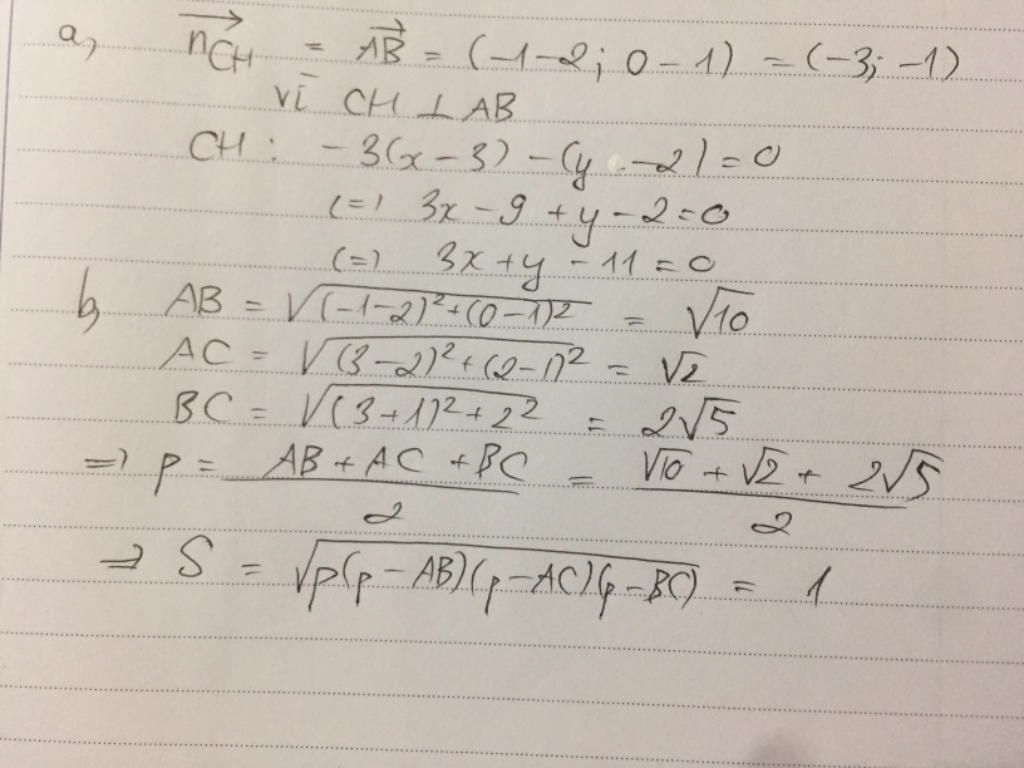 a, $\overrightarrow{n_{CH}} = \overrightarrow{AB} = (-1-2; 0-1) = (-3; -1)$
vì CH ⊥ AB
CH : -3(x-3) -(y -2) = 0
(=) 3x - 9 + y - 2 = 0
(=) 3x + y - 11 = 0
b, $AB = \sqrt{(-1-2)^2+(0-1)^2} = \sqrt{10}$
$AC = \sqrt{(3-2)^2+(2-1)^2} = \sqrt{2}$
$BC = \sqrt{(3+1)^2+2^2} = 2\sqrt{5}$
=> $p = \frac{AB+AC+BC}{2} = \frac{\sqrt{10}+\sqrt{2}+2\sqrt{5}}{2}$
=> $S = \sqrt{p(p-AB)(p-AC)(p-BC)} = 1$